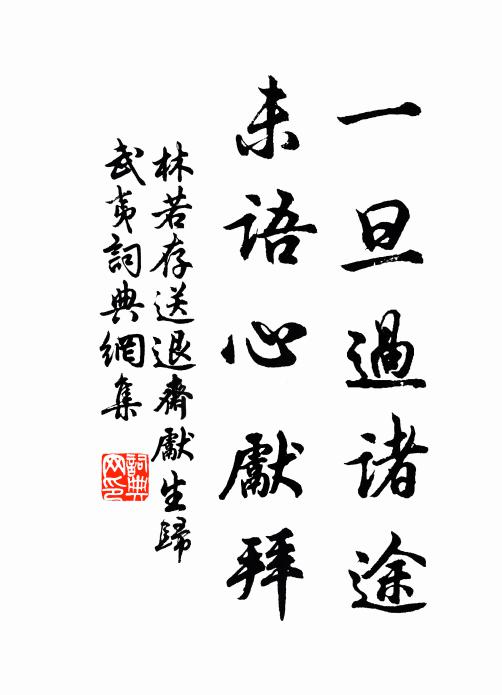 一旦過諸途
未語心獻拜
林若存送退齋獻生歸
武夷詞典網集
詞典
网印